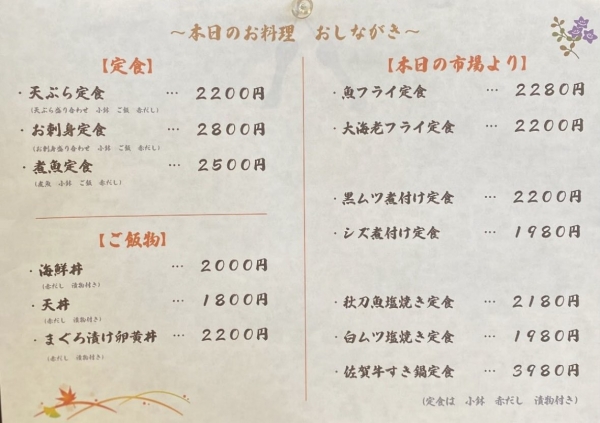 ～本日のお料理　おしながき～
【定食】
・天ぷら定食　…　2200円
（天ぷら盛り合わせ　小鉢　ご飯　赤だし）
・お刺身定食　…　2800円
（お刺身盛り合わせ　小鉢　ご飯　赤だし）
・煮魚定食　…　2500円
（煮魚　小鉢　ご飯　赤だし）
【ご飯物】
・海鮮丼　…　2000円
（赤だし　漬物付き）
・天丼　…　1800円
（赤だし　漬物付き）
・まぐろ漬け卵黄丼　…　2200円
（赤だし　漬物付き）
【本日の市場より】
・魚フライ定食　…　2280円
・大海老フライ定食　…　2200円
・黒ムツ煮付け定食　…　2200円
・シズ煮付け定食　…　1980円
・秋刀魚塩焼き定食　…　2180円
・白ムツ塩焼き定食　…　1980円
・佐賀牛すき鍋定食　…　3980円
（定食は　小鉢　赤だし　漬物付き）